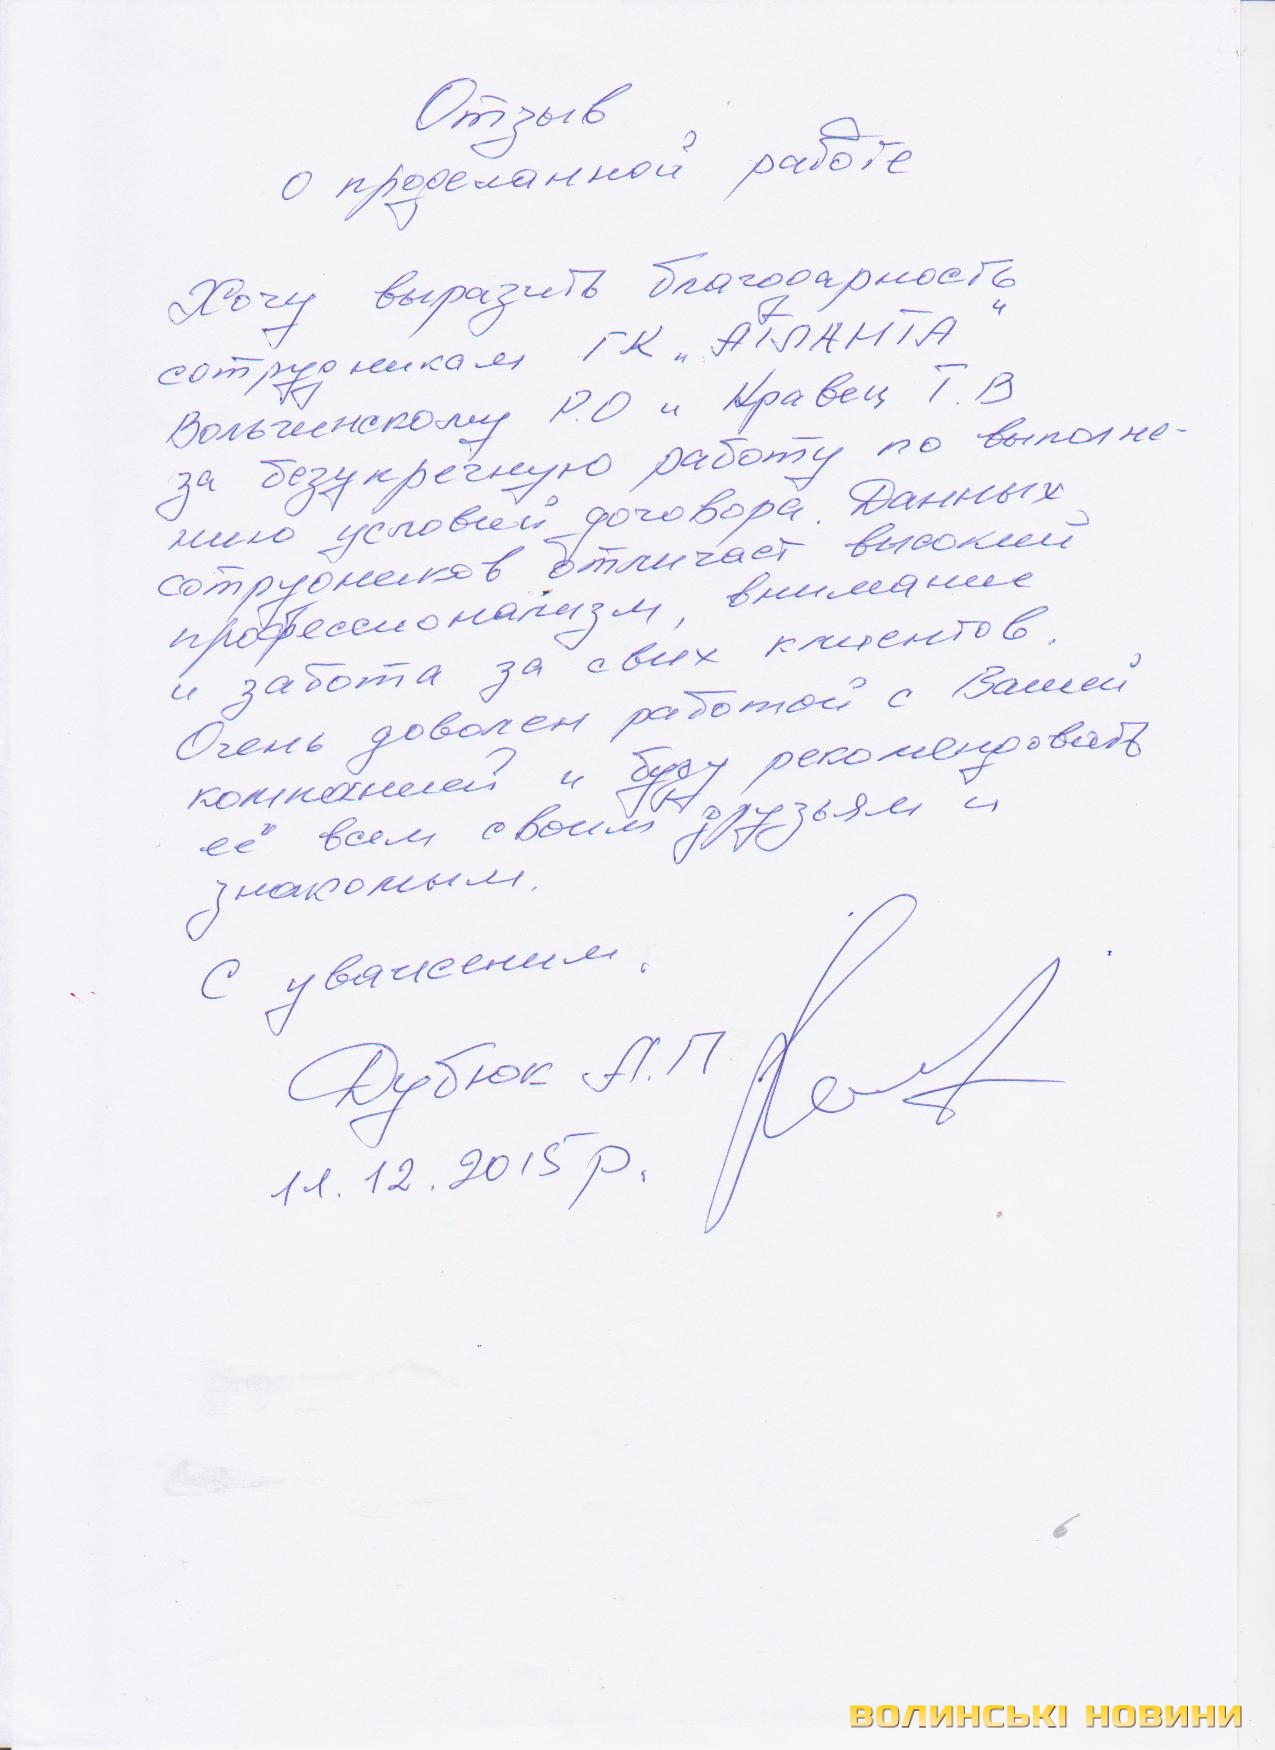 Отзыв
о проделанной работе
Хочу выразить благодарность
сотрудникам ГК „АТЛАНТА"
Вольчинскому Р.О и Кравец Т.В
за безукречную работу по выполне-
нию условий договора. Данных
сотрудников отличает высокий
профессионализм, внимание
и забота за свих клиентов.
Очень доволен работой с Вашей
компанией и буду рекомендовать
её всем своим друзьям и
знакомым.
С уважением.
Дубюк А.П
11.12.2015р.
6
ВОЛИНСЬКІ НОВИНИ